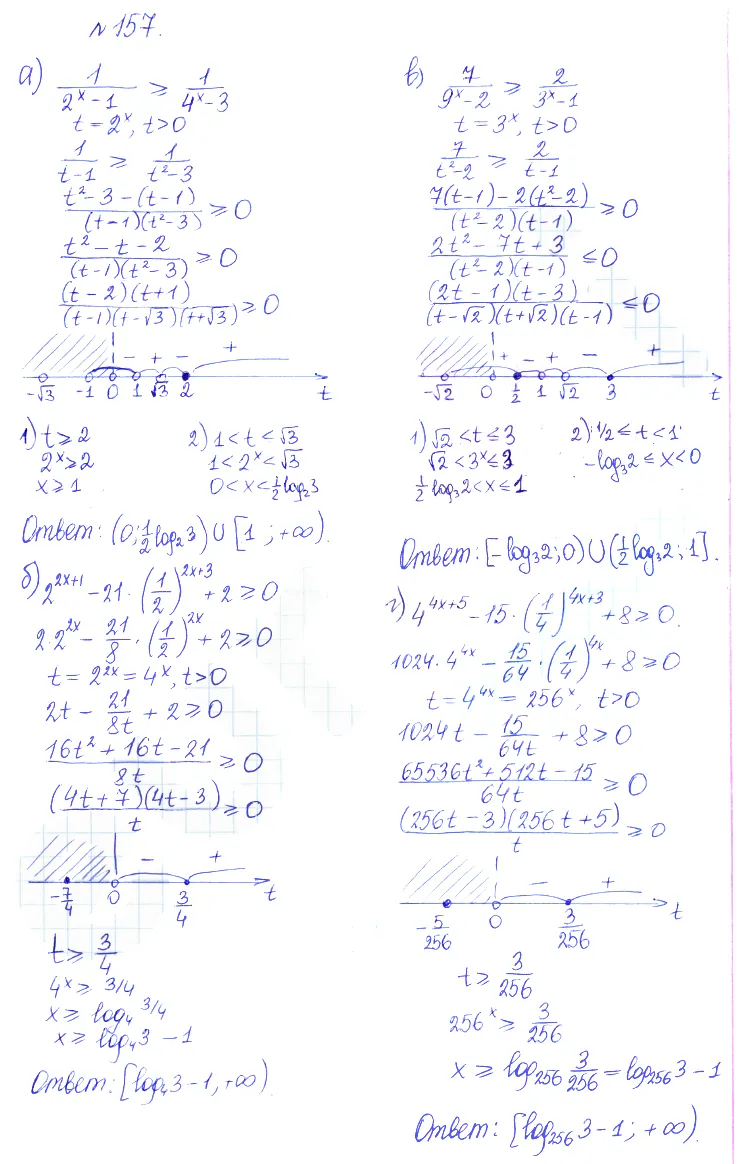 №157.
а) 1/(2^x − 1) ⩾ 1/(4^x − 3)
t = 2^x, t>0
1/(t−1) ⩾ 1/(t²−3)
(t²−3−(t−1))/((t−1)(t²−3)) ⩾ 0
(t²−t−2)/((t−1)(t²−3)) ⩾ 0
((t−2)(t+1))/((t−1)(t−√3)(t+√3)) ⩾ 0
− + − +
−√3 −1 0 1 √3 2 t
1) t⩾2 2) 1<t<√3
2^x⩾2 1<2^x<√3
x⩾1 0<x<½log₂3
Ответ: (0; ½log₂3)∪[1; +∞).
б) 2^(2x+1) − 21·(1/2)^(2x+3) + 2 ⩾ 0
2·2^(2x) − 21/8·(1/2)^(2x) + 2 ⩾ 0
t = 2^(2x) = 4^x, t>0
2t − 21/(8t) + 2 ⩾ 0
(16t² + 16t − 21)/(8t) ⩾ 0
((4t+7)(4t−3))/t ⩾ 0
− +
−7/4 0 3/4 t
t ⩾ 3/4
4^x ⩾ 3/4
x ⩾ log₄ 3/4
x ⩾ log₄3 − 1
Ответ: [log₄3−1, +∞)
в) 7/(9^x−2) ⩾ 2/(3^x−1)
t = 3^x, t>0
7/(t²−2) ⩾ 2/(t−1)
(7(t−1)−2(t²−2))/((t²−2)(t−1)) ⩾ 0
(2t²−7t+3)/((t²−2)(t−1)) ⩽ 0
((2t−1)(t−3))/((t−√2)(t+√2)(t−1)) ⩽ 0
+ − + − +
−√2 0 ½ 1 √2 3 t
1) √2<t⩽3 2) 1/2⩽t<1
√2<3^x⩽3 −log₃2⩽x<0
½log₃2<x⩽1
Ответ: [−log₃2; 0)∪(½log₃2; 1].
г) 4^(4x+5) − 15·(1/4)^(4x+3) + 8 ⩾ 0.
1024·4^(4x) − 15/64·(1/4)^(4x) + 8 ⩾ 0
t = 4^(4x) = 256^x, t>0
1024t − 15/(64t) + 8 ⩾ 0
(65536t² + 512t − 15)/(64t) ⩾ 0
((256t−3)(256t+5))/t ⩾ 0
− +
−5/256 0 3/256 t
t ⩾ 3/256
256^x ⩾ 3/256
x ⩾ log₂₅₆ 3/256 = log₂₅₆3 − 1
Ответ: [log₂₅₆3−1; +∞).